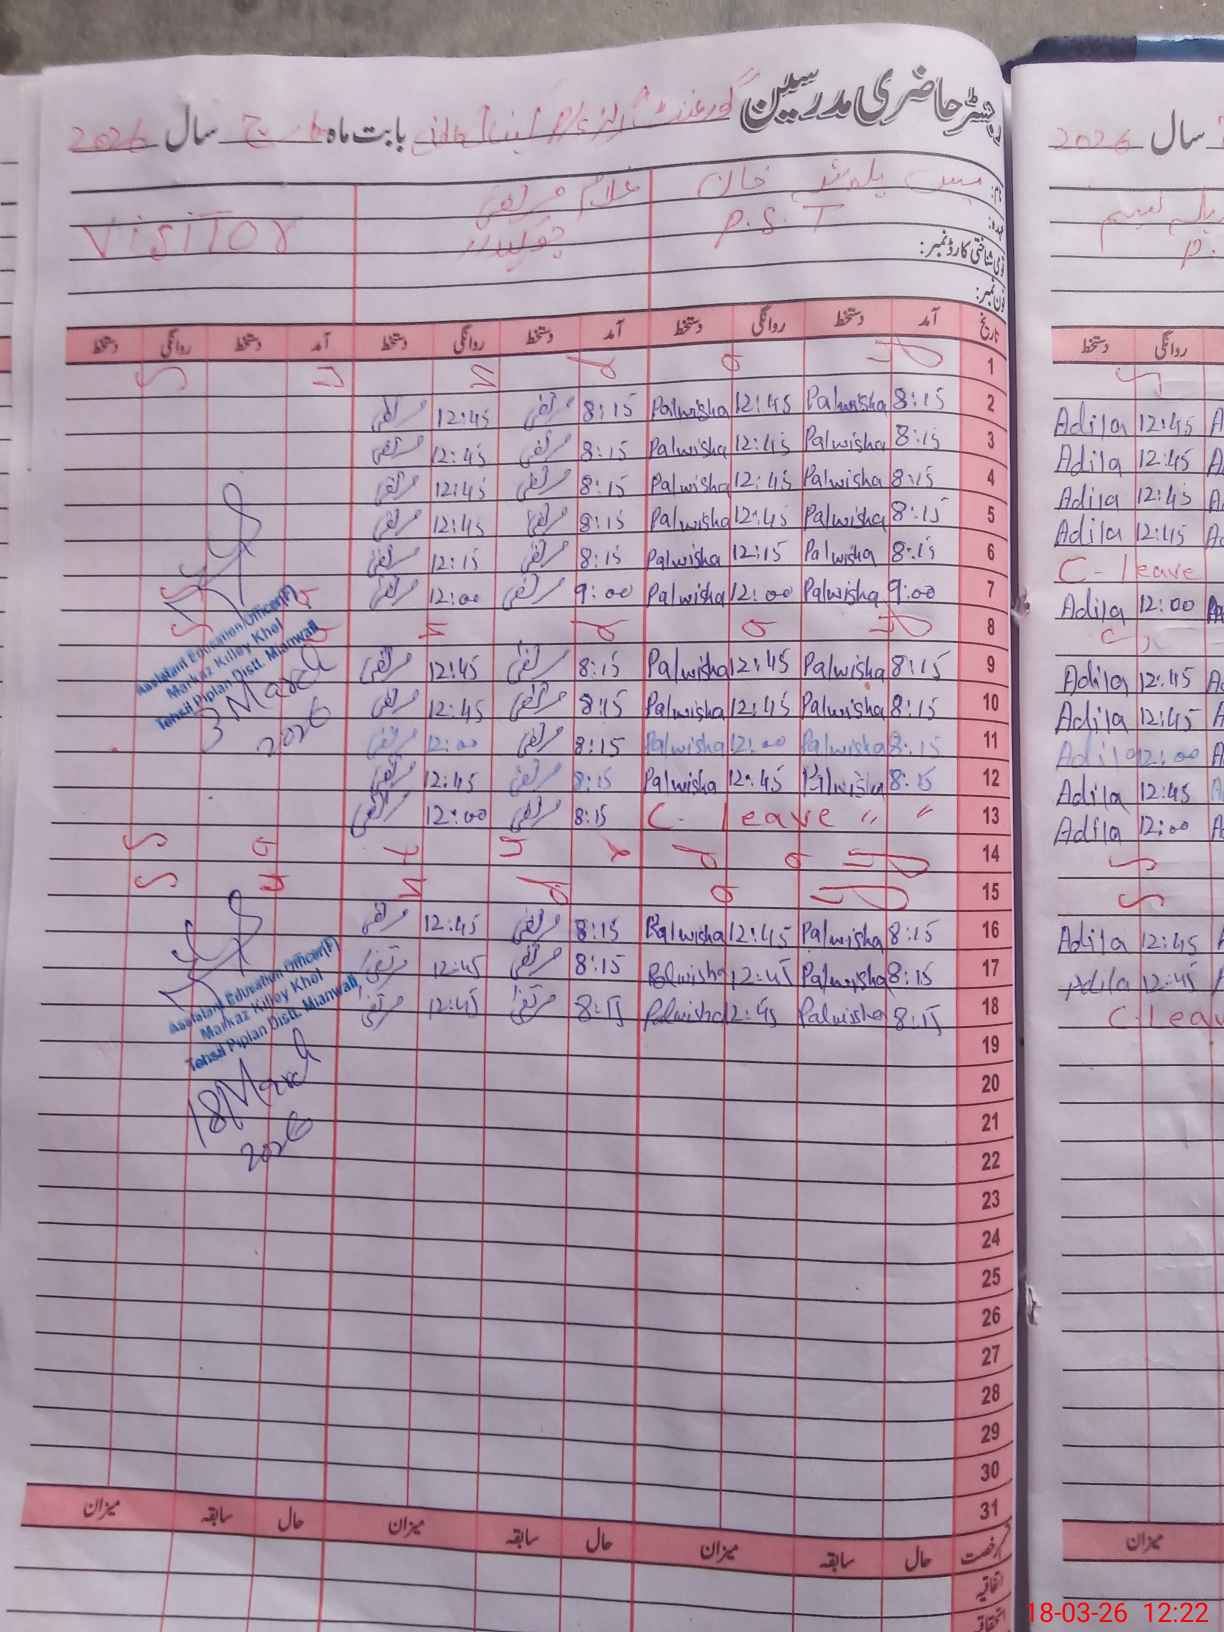 رجسٹر حاضری مدرسین گورنمنٹ بابت ماہ مارچ سال 2026
نام: مس پلوشہ خان غلام مرتضیٰ
عہدہ: P.S.T چوکیدار VISITOR
قومی شناختی کارڈ نمبر:
فون نمبر:
تاریخ آمد دستخط روانگی دستخط آمد دستخط روانگی دستخط آمد دستخط روانگی دستخط
1
2 8:15 Palwisha 12:45 Palwisha 8:15 مرتضیٰ 12:45 مرتضیٰ
3 8:15 Palwisha 12:45 Palwisha 8:15 مرتضیٰ 12:45 مرتضیٰ
4 8:15 Palwisha 12:45 Palwisha 8:15 مرتضیٰ 12:45 مرتضیٰ
5 8:15 Palwisha 12:45 Palwisha 8:15 مرتضیٰ 12:45 مرتضیٰ
6 8:15 Palwisha 12:15 Palwisha 8:15 مرتضیٰ 12:15 مرتضیٰ
7 9:00 Palwisha 12:00 Palwisha 9:00 مرتضیٰ 12:00 مرتضیٰ
8
9 8:15 Palwisha 12:45 Palwisha 8:15 مرتضیٰ 12:45 مرتضیٰ
10 8:15 Palwisha 12:45 Palwisha 8:15 مرتضیٰ 12:45 مرتضیٰ
11 8:15 Palwisha 12:00 Palwisha 8:15 مرتضیٰ 12:00 مرتضیٰ
12 8:15 Palwisha 12:45 Palwisha 8:15 مرتضیٰ 12:45 مرتضیٰ
13 C. leave " " 8:15 مرتضیٰ 12:00 مرتضیٰ
14
15
16 8:15 Palwisha 12:45 Palwisha 8:15 مرتضیٰ 12:45 مرتضیٰ
17 8:15 Palwisha 12:45 Palwisha 8:15 مرتضیٰ 12:45 مرتضیٰ
18 8:15 Palwisha 12:45 Palwisha 8:15 مرتضیٰ 12:45 مرتضیٰ
19
20
21
22
23
24
25
26
27
28
29
30
31
Assistant Education Officer(F)
Markaz Killoy Khel
Tehsil Piplan Distt. Mianwali
3 March
2026
Assistant Education Officer(F)
Markaz Killoy Khel
Tehsil Piplan Distt. Mianwali
18 March
2026
رخصت حال سابقہ میزان حال سابقہ میزان حال سابقہ میزان
اتفاقیہ
استحقاقیہ
سال 2026
P.
روانگی دستخط
12:45 Adila
12:45 Adila
12:45 Adila
12:45 Adila
C- leave
12:00 Adila
12:45 Adila
12:45 Adila
12:00 Adila
12:45 Adila
12:00 Adila
12:45 Adila
12:45 Adila
C. Leave
میزان
18-03-26 12:22